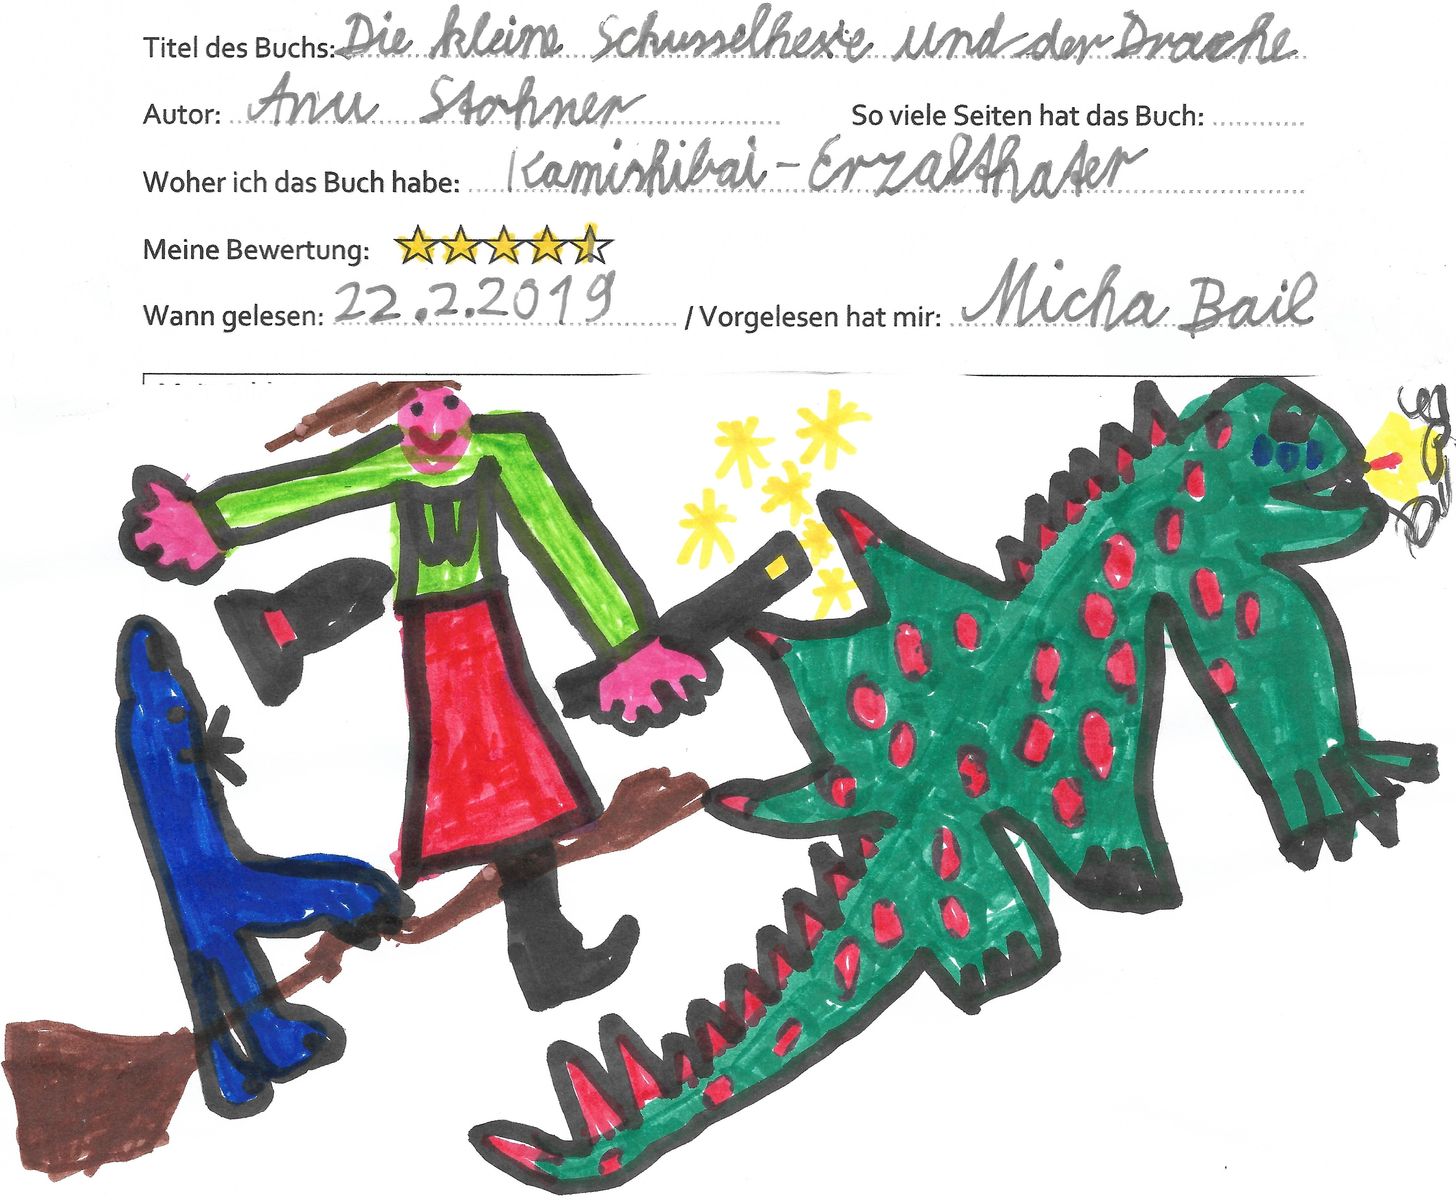 Titel des Buchs: Die kleine Schusselhexe und der Drache
Autor: Anu Stohner So viele Seiten hat das Buch:
Woher ich das Buch habe: Kamishibai-Erzalthater
Meine Bewertung:
Wann gelesen: 22.2.2019 / Vorgelesen hat mir: Micha Bail
W